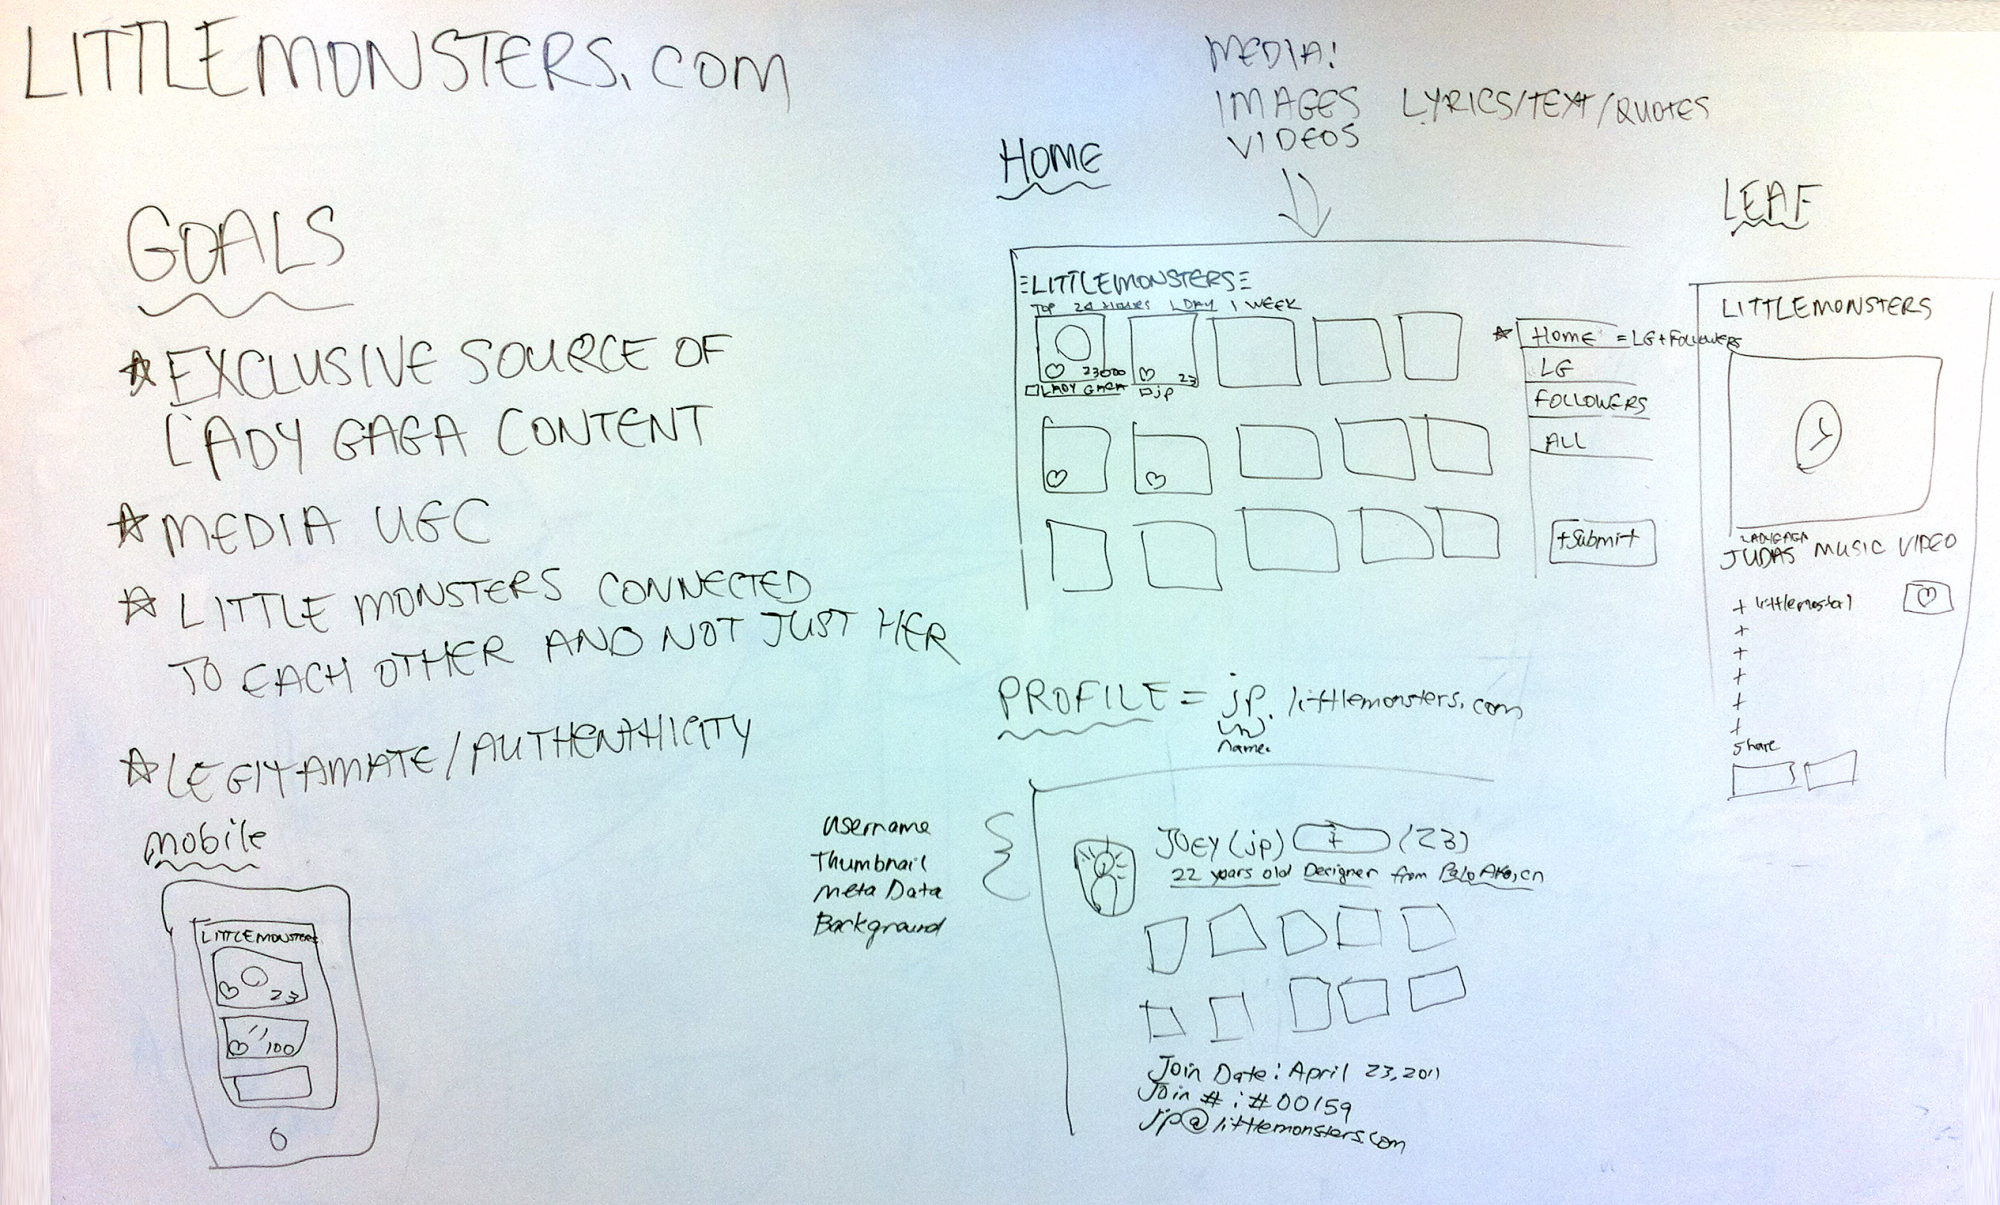 LITTLEMONSTERS.COM
GOALS
☆ EXCLUSIVE SOURCE OF
LADY GAGA CONTENT
☆ MEDIA UGC
☆ LITTLE MONSTERS CONNECTED
TO EACH OTHER AND NOT JUST HER
☆ LEGITAMATE/AUTHENTHICITY
mobile
LITTLEMONSTERS
23
100
MEDIA:
IMAGES LYRICS/TEXT/QUOTES
VIDEOS
HOME
LITTLEMONSTERS
TOP 24 HOURS 1 DAY 1 WEEK
23000
23
LADY GAGA
jp
☆ HOME = LG+FOLLOWERS
LG
FOLLOWERS
ALL
+Submit
LEAF
LITTLEMONSTERS
LADYGAGA
JUDAS MUSIC VIDEO
+ littlemonster1
+
+
+
+
+
Share
PROFILE = jp.littlemonsters.com
name.
Username
Thumbnail
Meta Data
Background
JOEY (jp) + (23)
22 years old Designer from Palo Alto, ca
Join Date: April 23, 2011
Join #: #00159
jp@littlemonsters.com